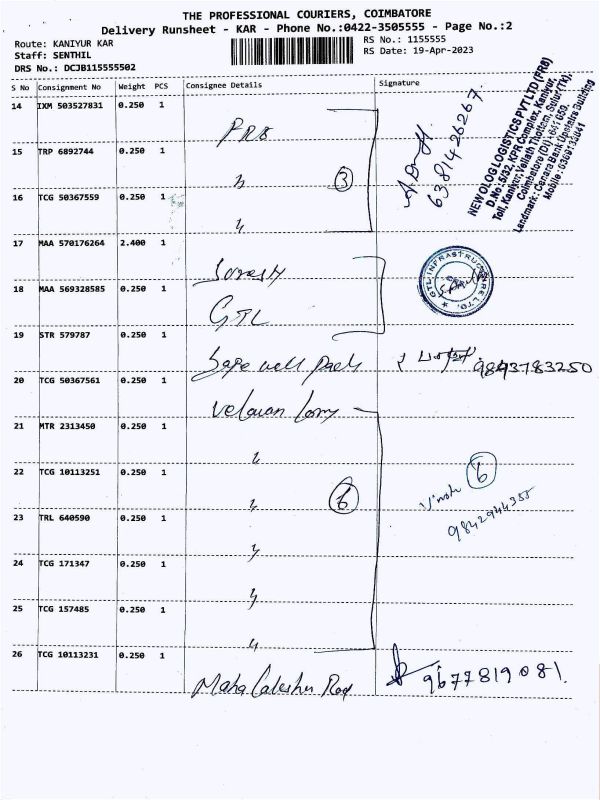 THE PROFESSIONAL COURIERS, COIMBATORE
Delivery Runsheet - KAR - Phone No.:0422-3505555 - Page No.:2
Route: KANIYUR KAR
Staff: SENTHIL
DRS No.: DCJB115555502
RS No.: 1155555
RS Date: 19-Apr-2023
S No Consignment No Weight PCS Consignee Details Signature
14 IXM 503527831 0.250 1
FR8
15 TRP 6892744 0.250 1
3
16 TCG 50367559 0.250 1
6381426267.
NEW OLOG LOGISTICS PVT LTD (FR8)
D.No :5/32, KPR Complex, Kaniyur,
Toll, Kaniyur, Vellath Thottam, Sulur (TK),
Coimbatore (Dt) - 641 659.
Landmark : Canara Bank Upstairs Building
17 MAA 570176264 2.400 1
Suresh
18 MAA 569328585 0.250 1
GTL
GTL INFRASTRUCTURE LTD.
19 STR 579787 0.250 1
Safe well Pack
9843783250
20 TCG 50367561 0.250 1
Velavan lorry
21 MTR 2313450 0.250 1
22 TCG 10113251 0.250 1
6
Vinoth 6
9842944355
23 TRL 640590 0.250 1
24 TCG 171347 0.250 1
25 TCG 157485 0.250 1
26 TCG 10113231 0.250 1
9677819081.